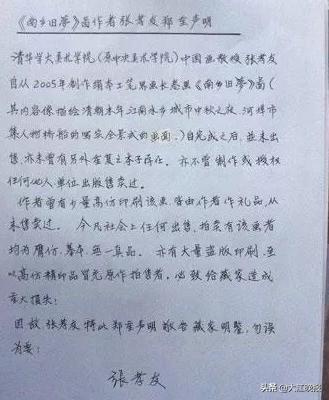 《南乡旧梦》画作者张孝友郑重声明
清华大学美术学院(原中央美术学院)中国画教授张孝友
自从2005年制作绢本工笔界画长卷《南乡旧梦》画(
其内容系描绘清朝末年江南水乡城市中秋之夜,河埠市
集人相桥船的喧哗全景式的画面。)自完成之后,並未出
售,亦未曾有另外重复之本子存在。亦不曾制作或授权
任何他人、单位出版售卖过。
作者曾有少量高仿印刷该画,留由作者作礼品,从
未售卖过。今凡社会上任何出售、拍卖有该画者
均为赝仿、摹本,无一真品。亦有大量盗版印刷,至
以高仿精印品冒充原作拍售者,必致给藏家造成
重大损失!
因故,张孝友特此郑重声明敬告藏家明鉴,勿误
为要!
张孝友
头条@大江晚报